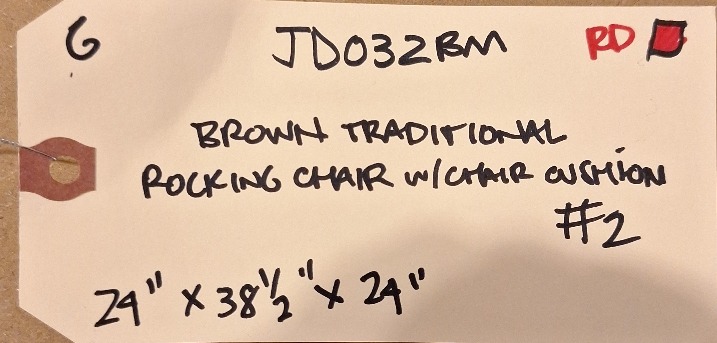 G JD032BM RD
BROWN TRADITIONAL
ROCKING CHAIR W/CHAIR CUSHION
#2
24" x 38 1/2" x 24"